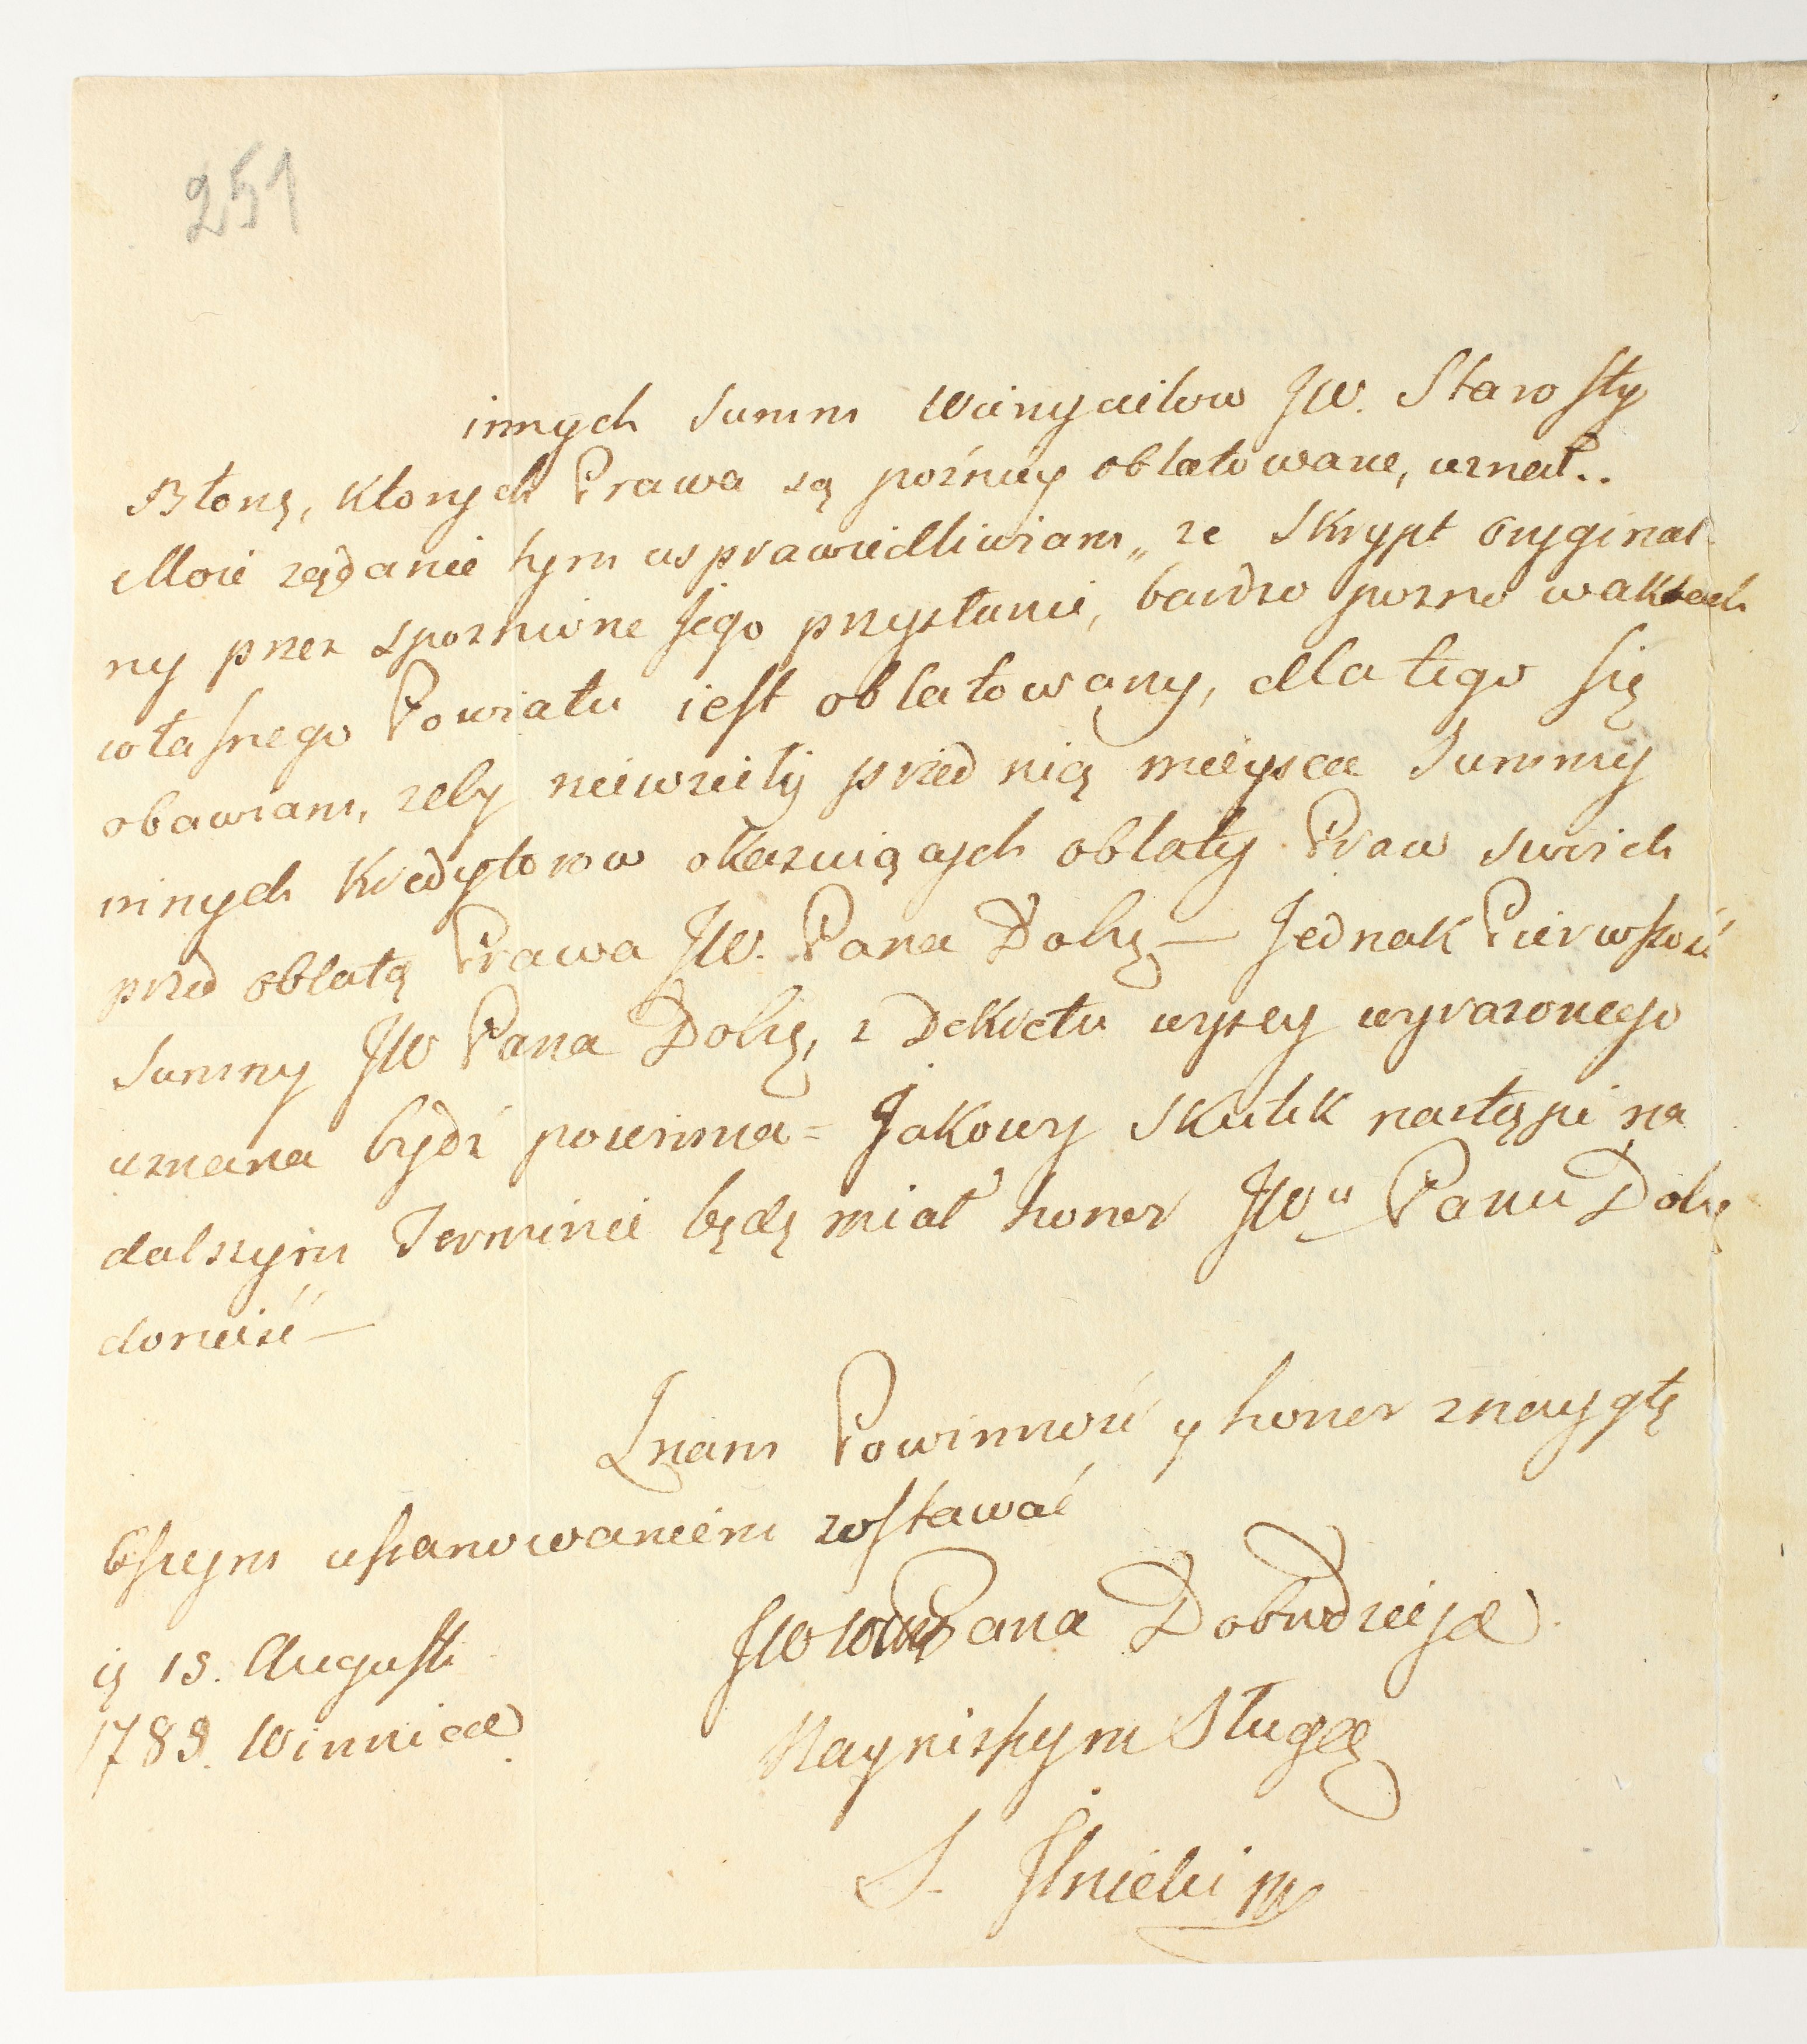 251
innych Summ Wierzycielow JW. Starosty
Błoń, ktorych Prawa są pozniey oblatowane, uznał..
Moie ządanie tym usprawiedliwiam, ze Skrypt Oryginal
ny przez spoznione Jego przysłanie, bardzo pozno w aktach
własnego Powiatu iest oblatowany, dla tego się
obawiam, zeby nie wzieły przed nią mieysca Summy
innych Kredytorow okazuiących oblaty Praw swoich
przed oblatą Prawa JW. Pana Dobę — Jednak Pierwszość
Summy JW Pana Dobę, z Dekretu wyzey wyrazonego
uznana bydź powinna = Jakowy Skutek nastąpi na
dalszym Terminie będę miał honor JWu Panu Dobę
donieść —
Znam Powinność y honor z nayglę
bszym uszanowaniem zostawać
JW Pana Dobrodzieja
13. Augusti
1789. Winnica
Nayniższym Sługą
S. Ilnicki mp